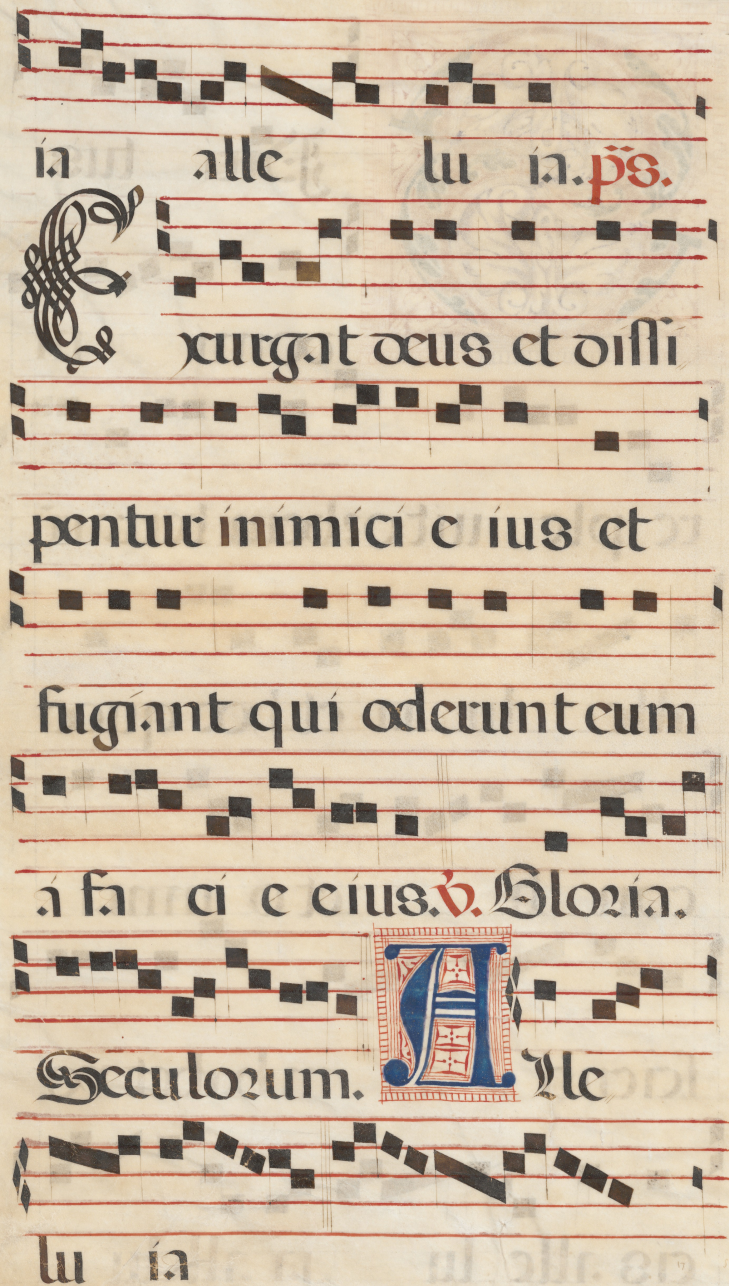 ia alle lu ia. ps.
Exurgat deus et dissi
pentur inimici e ius et
fugiant qui oderunt eum
a fa ci e eius. V. Gloria.
Seculorum. Alle
lu ia